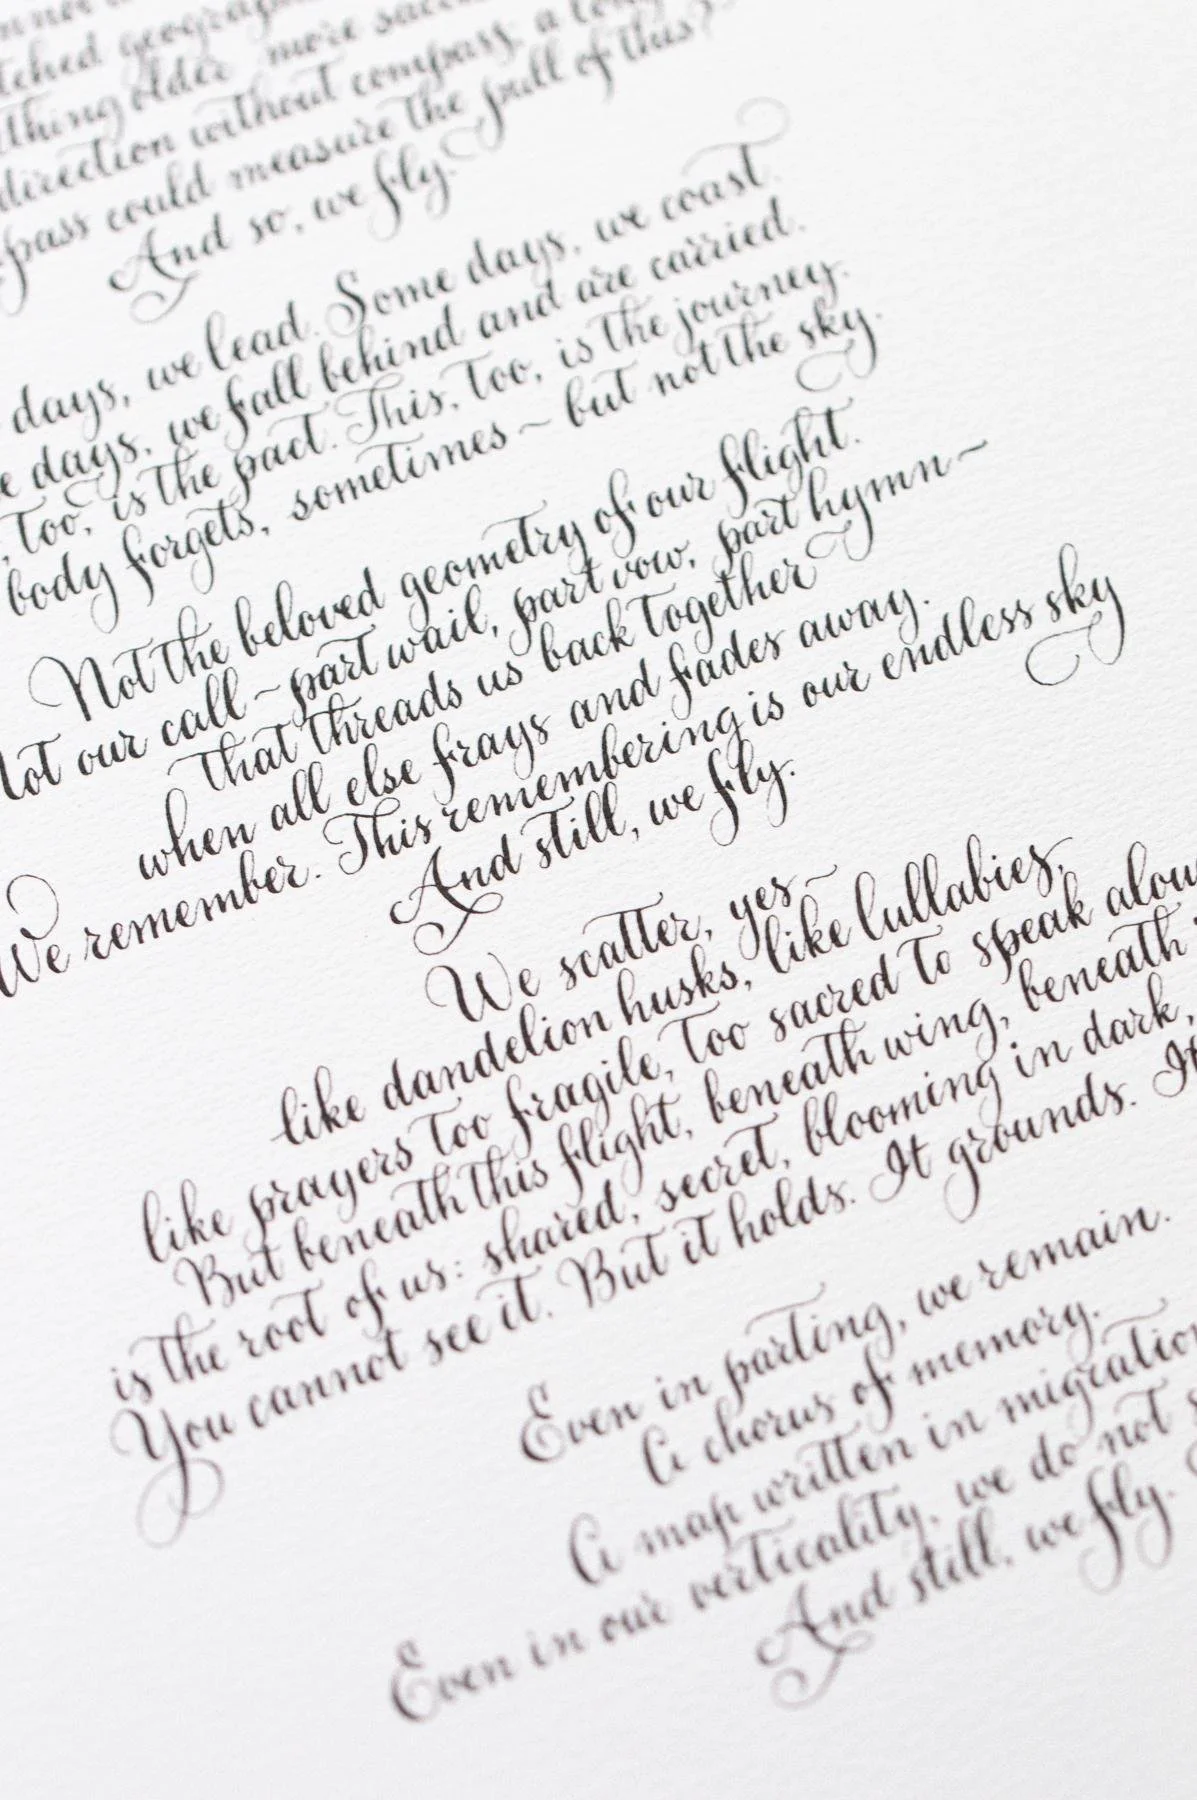 geography
thing older more
direction without compass, a
pass could measure the pull of this?
And so, we fly.
days, we lead. Some days, we coast.
days, we fall behind and are carried.
, too, is the pact. This, too, is the journey.
body forgets, sometimes ~ but not the sky.
Not the beloved geometry of our flight.
Not our call ~ part wail, part vow, part hymn ~
that threads us back together
when all else frays and fades away.
We remember. This remembering is our endless sky
And still, we fly.
We scatter, yes ~
like dandelion husks, like lullabies,
like prayers too fragile, too sacred to speak
But beneath this flight, beneath wing, beneath
is the root of us: shared, secret, blooming in dark,
You cannot see it. But it holds. It grounds. It
Even in parting, we remain.
A chorus of memory.
A map written in
Even in our verticality, we do not
And still, we fly.